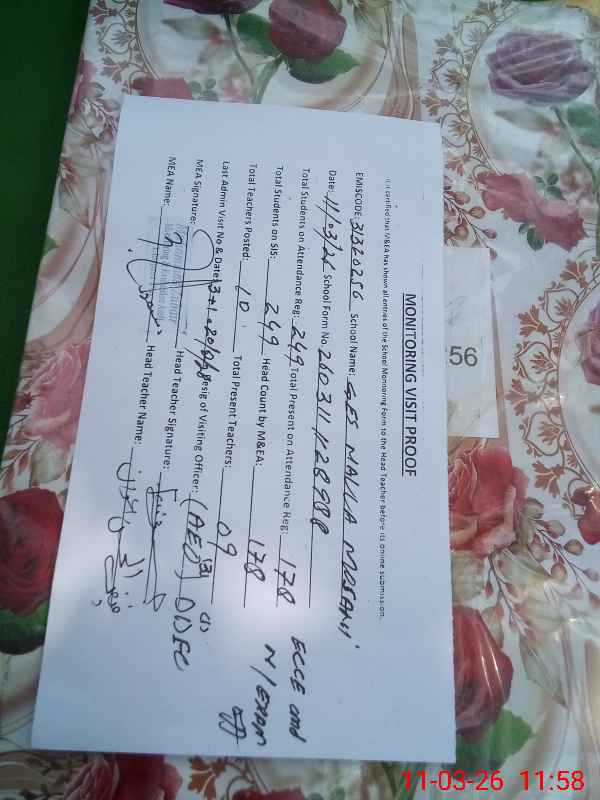 MONITORING VISIT PROOF
It is certified that M&EA has shown all entries of the School Monitoring Form to the Head Teacher before its online submission.
EMISCODE: 31320256 School Name: GES MAULA
Date: 11/03/26 School Form No. 260311112898
Total Students on Attendance Reg: 249 Total Present on Attendance Reg: 178
Total Students on SIS: 249 Head Count by M&EA: 178
Total Teachers Posted: 10 Total Present Teachers: 09
Last Admin Visit No & Date: Desig of Visiting Officer: (AEO) DDEC
MEA Signature: Head Teacher Signature:
MEA Name: Head Teacher Name:
ECCE and
N/Exam
off
256
11-03-26 11:58